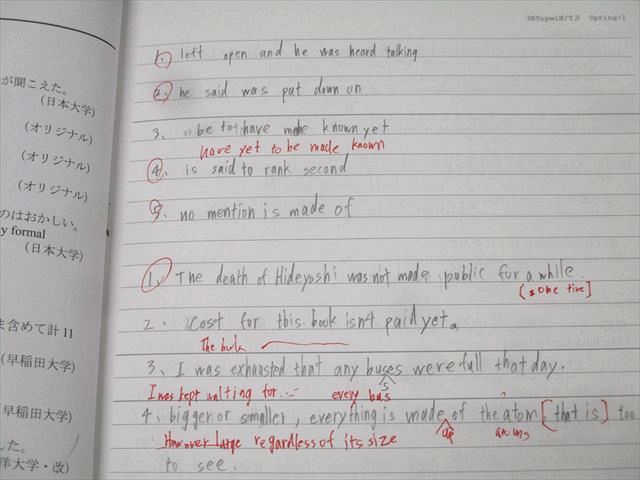 3ETopwiH/Tβ Spring-1
が聞こえた。
(日本大学)
(オリジナル)
(オリジナル)
(オリジナル)
のはおかしい。
y formal
(日本大学)
ま含めて計 11
(早稲田大学)
早稲田大学)
した。
洋大学・改)
1. left open and he was heard talking
2. he said was put down on
3. be to have made known yet
have yet to be made known
4. is said to rank second
5. no mention is made of
1. The death of Hideyoshi was not made public for a while.
[some time]
2. Cost for this book isn't paid yet.
The bill
3. I was exhausted that any buses were full that day.
I was kept waiting for every bus
4. bigger or smaller, everything is made of the atom [that is] too
However large regardless of its size up
to see.